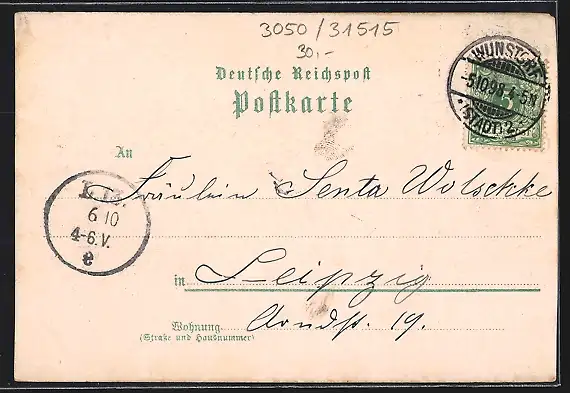 3050/31515
30.-
Deutsche Reichspost
Postkarte
WUNSTORF
-5.10.98.4-5N
* (STADT) 2. *
5
An
Fräulein Senta Wolschke
6 10
4-6.V.
e
in Leipzig
Wohnung Arndtst. 19.
(Straße und Hausnummer)